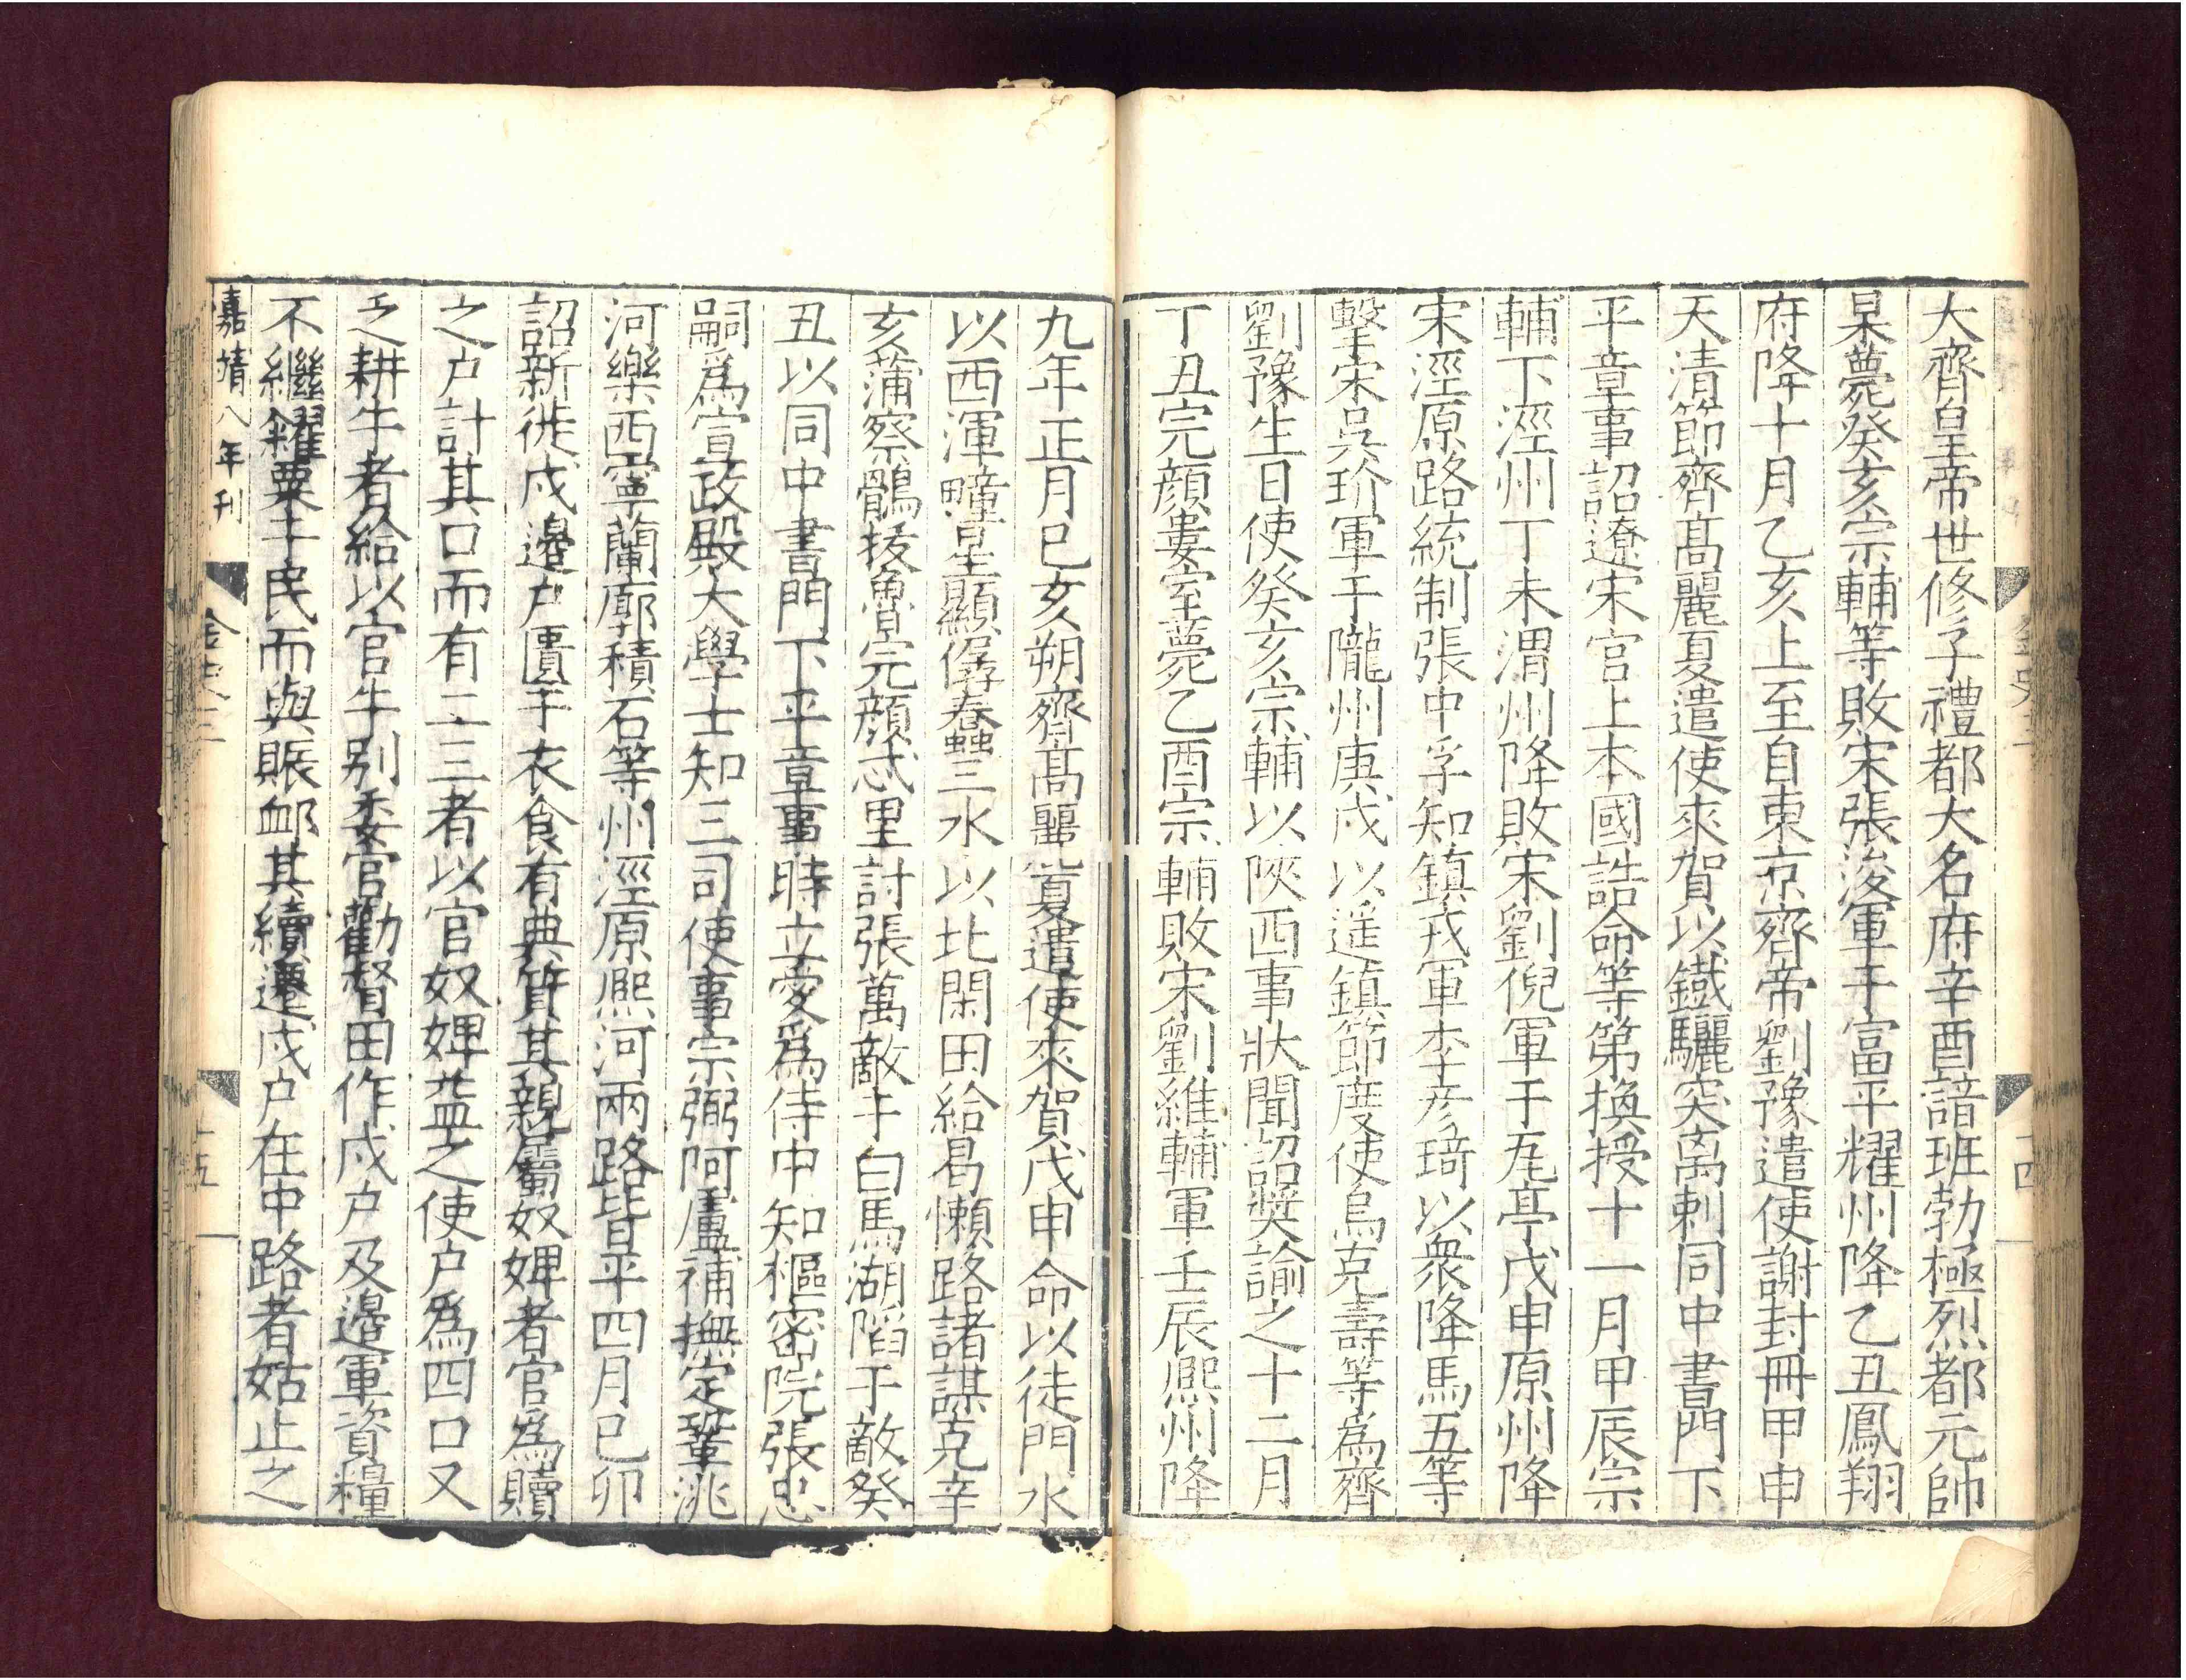 大齊皇帝世修子禮都大名府辛酉諳班勃極烈都元帥
杲薨癸亥宗輔等敗宋張浚軍于富平耀州降乙丑鳳翔
府降十月乙亥上至自東京齊帝劉豫遣使謝封冊甲申
天清節齊髙麗夏遣使來賀以鐵驪突离剌同中書門下
平章事詔遼宋官上本國誥命等第換授十一月甲辰宗
輔下涇州丁未渭州降敗宋劉倪軍于瓦亭戊申原州降
宋涇原路統制張中孚知鎮戎軍李彦琦以衆降馬五等
擊宋吳玠軍于隴州庚戌以遥鎮節度使烏克壽等爲齊
劉豫生日使癸亥宗輔以陝西事狀聞詔奬諭之十二月
丁丑完顔婁室薨乙酉宗輔敗宋劉維輔軍壬辰熈州降
九年正月已亥朔齊髙麗夏遣使來賀戊申命以徒門水
以西渾疃星顯僝蠢三水以北閑田給曷懶路諸謀克辛
亥蒲察鶻拔魯完顔忒里討張萬敵于白馬湖陷于敵癸
丑以同中書門下平章事時立愛爲侍中知樞密院張忠
嗣爲宣政殿大學士知三司使事宗弼阿盧補撫定鞏洮
河樂西寧蘭廓積石等州涇原熈河兩路皆平四月已卯
詔新徙戍邊户匱于衣食有典質其親屬奴婢者官爲贖
之户計其口而有二三者以官奴婢益之使户爲四口又
乏耕牛者給以官牛别委官勸督田作戍户及邊軍資糧
不繼糴粟于民而與賑衈其續遷戍户在中路者姑止之
嘉靖八年刊
金史三
十五